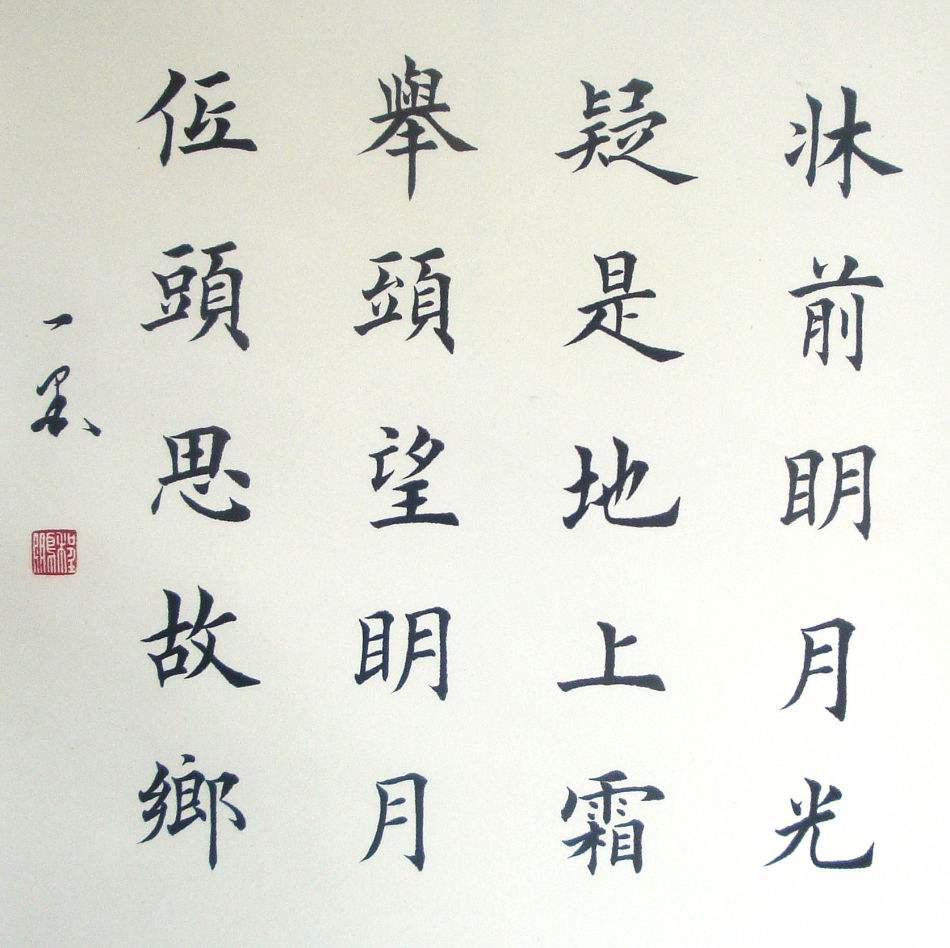 牀前明月光
疑是地上霜
舉頭望明月
低頭思故鄉
程鵬